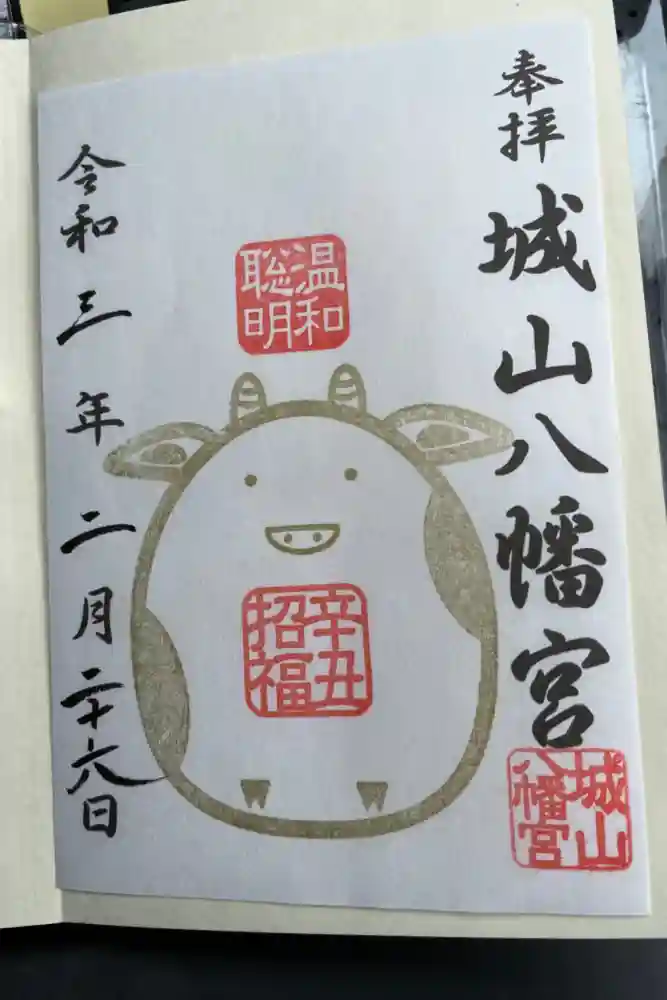 奉拝
城山八幡宮
城山
八幡宮
温和
聡明
辛丑
招福
令和三年二月二十六日